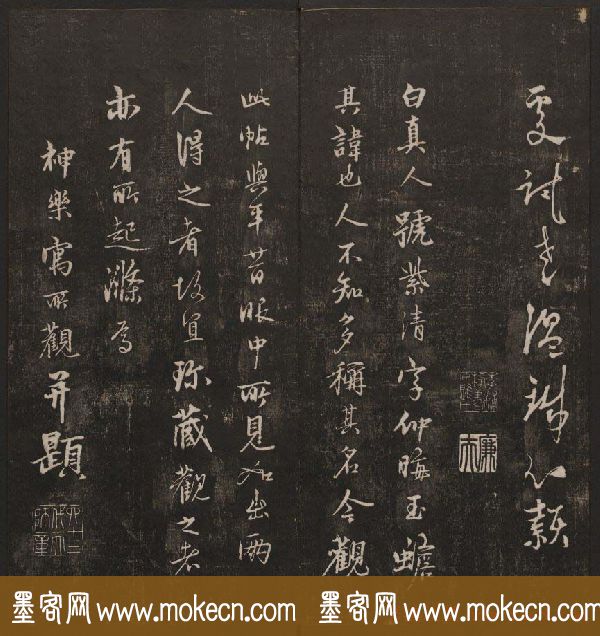 試老溫
白真人號紫清字仲晦玉蟾
其諱也人不知多稱其名今觀
此帖與平昔眼中所見如出兩
人得之者宜珍藏觀之者
亦有所起滌焉
神樂寓所觀并題
墨客网 www.mokecn.com 墨客网 www.mokecn.com